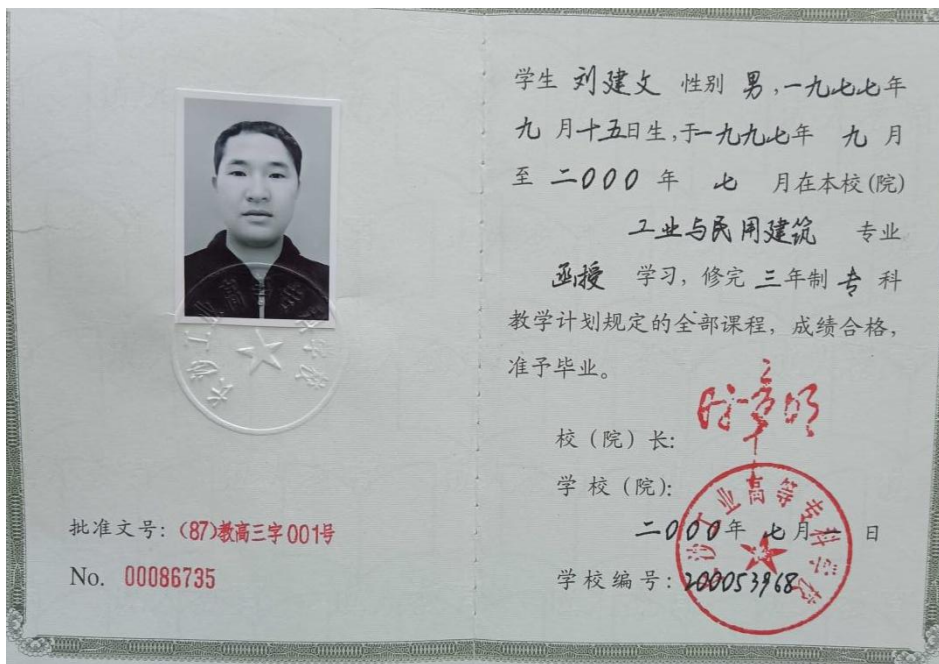 长沙工业高等专科学校
批准文号：(87)教高三字001号
No. 00086735
学生 刘建文 性别 男，一九七七年
九 月十五日生，于一九九七年 九 月
至 二000 年 七 月在本校(院)
工业与民用建筑 专业
函授 学习，修完 三年制 专 科
教学计划规定的全部课程，成绩合格，
准予毕业。
校（院）长：
学校（院）：
长沙工业高等专科学校
二000年 七月 日
学校编号：200053968